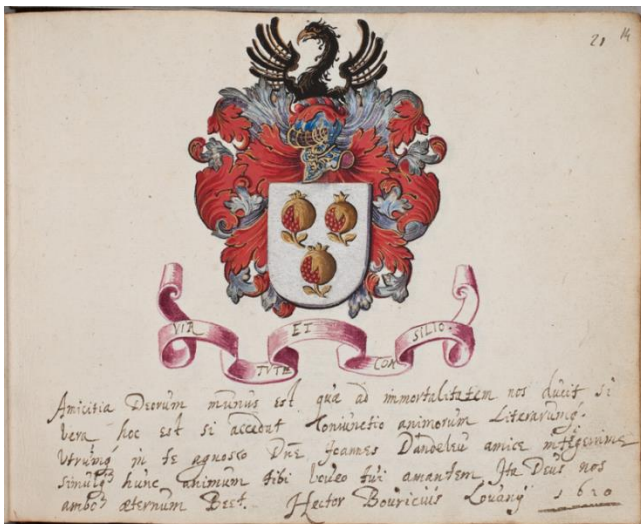 21 14
VIR TVTE ET CON SILIO.
Amicitia Deorum munus est qua ad immortalitatem nos ducit si
vera hoc est si accedat Coniunctio animorum Literarumq̃.
Vtrumq̃ in te agnosco Dñe Joannes Dandeleu amice integerrime
simulq̃ hunc animum tibi tui amantem Ita Deus nos
ambos æternum Beet. Hector Bouricius Lovanij 1610